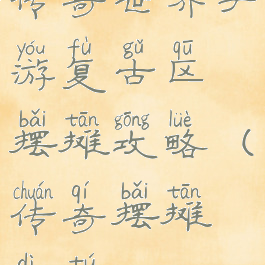 传奇世界手
yóu fù gǔ qū
游复古区
bǎi tān gōng lüè
摆摊攻略（
chuán qí bǎi tān
传奇摆摊
dì tú